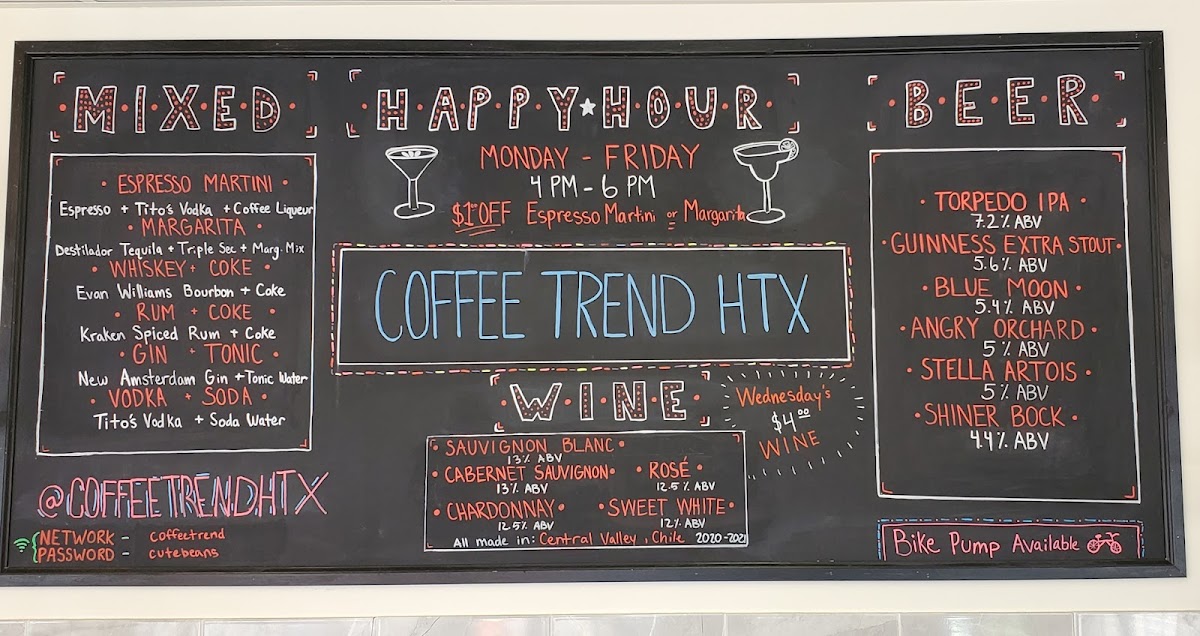 M·I·X·E·D
· ESPRESSO MARTINI ·
Espresso + Tito's Vodka + Coffee Liqueur
· MARGARITA ·
Destilador Tequila + Triple Sec + Marg. Mix
· WHISKEY + COKE ·
Evan Williams Bourbon + Coke
· RUM + COKE ·
Kraken Spiced Rum + Coke
· GIN + TONIC ·
New Amsterdam Gin + Tonic Water
· VODKA + SODA ·
Tito's Vodka + Soda Water
@COFFEETRENDHTX
NETWORK - coffeetrend
PASSWORD - cutebeans
H·A·P·P·Y★H·O·U·R
MONDAY - FRIDAY
4 PM - 6 PM
$1.00 OFF Espresso Martini or Margarita
COFFEE TREND HTX
W·I·N·E
· SAUVIGNON BLANC ·
13% ABV
· CABERNET SAUVIGNON ·
13% ABV
· ROSÉ ·
12.5% ABV
· CHARDONNAY ·
12.5% ABV
· SWEET WHITE ·
12% ABV
All made in: Central Valley, Chile 2020-2021
Wednesday's
$4.00
WINE
B·E·E·R
· TORPEDO IPA ·
7.2% ABV
· GUINNESS EXTRA STOUT ·
5.6% ABV
· BLUE MOON ·
5.4% ABV
· ANGRY ORCHARD ·
5% ABV
· STELLA ARTOIS ·
5% ABV
· SHINER BOCK ·
4.4% ABV
Bike Pump Available